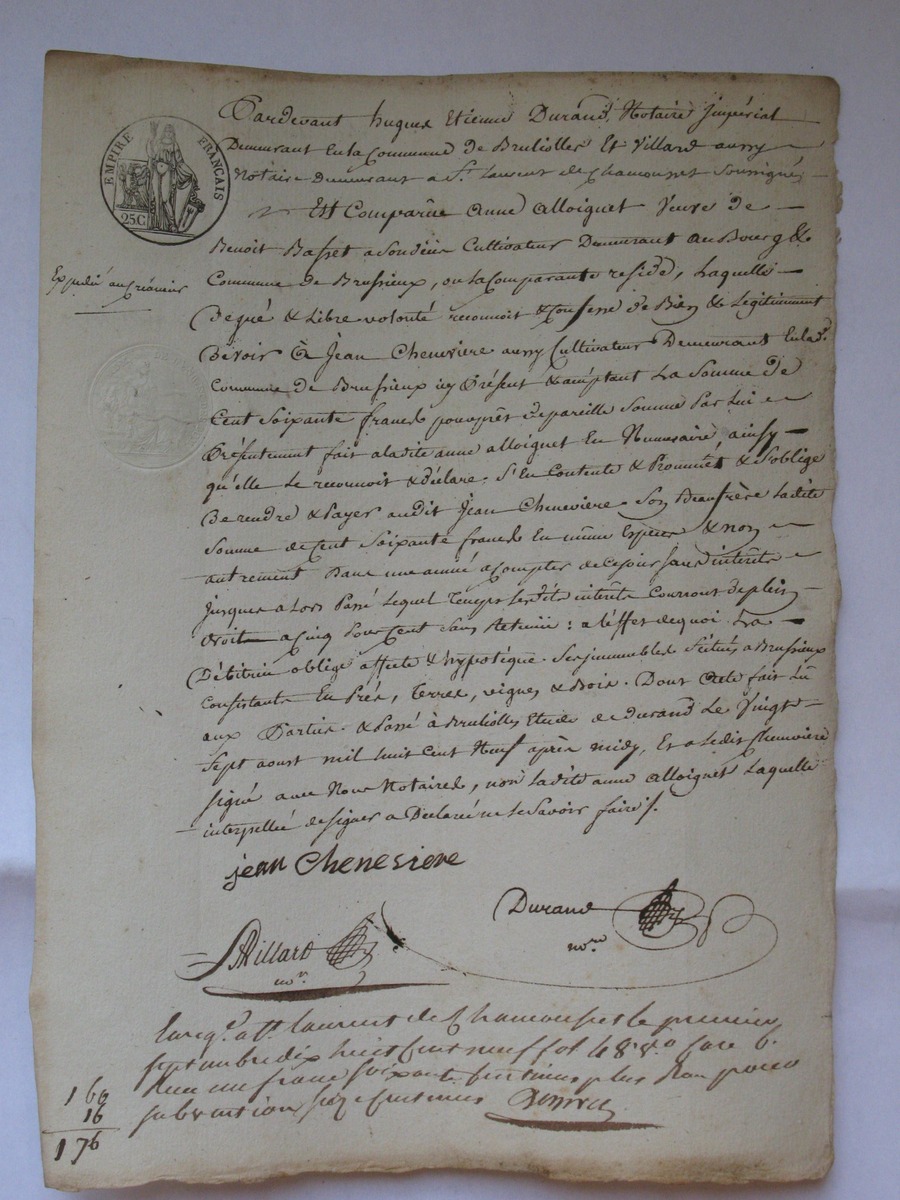 EMPIRE FRANÇAIS
25C
Pardevant hugues Etienne Durand, Notaire Impérial
Demeurant En la Commune de Brullioles Et Villard aussy
Notaire Demeurant a St. Laurent de Chamousset Soussignés
Est Comparüe anne alloignet Veuve de
Benoit Basset a Son décès Cultivateur Demeurant au Bourg &
Commune de Brussieux, ou la Comparante reside, Laquelle
De gré & Libre volonté reconnoit & Confesse de Bien & Legitimement
Expédié au Créancier
Devoir à Jean Chenevière aussy Cultivateur Demeurant En lad.
Commune de Brussieux icy Présent & acceptant La Somme de
Cent Soixante francs pour prêt de pareille Somme Par Lui
Présentement fait a ladite anne alloignet En Numeraire, ainsy
qu'elle Le reconnoit & déclare, S'En Contente & Prommet & S'oblige
De rendre & Payer audit Jean Cheneviere Son Beaufrère Ladite
Somme de Cent Soixante francs En même Espèces & non
autrement Dans une année a compter de ce jour Sans intérêts
Jusques a Lors Passé Lequel Temps Lesdits intérêts Courront de plein
droit a Cinq Pour Cent Sans Retenüe : a l'effet de quoi La
Débitrice oblige affecte & hypotéque Ses immeubles Situés a Brussieux
Consistants En Prés, Terres, vignes & Bois. Dont acte fait Lu
aux Parties & Passé à Brullioles Etude de Durand Le Vingt
Sept aoust mil huit Cent Neuf après midy, Et a Ledit Chenevière
signé avec Nous Notaires, non Ladite anne alloignet Laquelle
interpellée de signer a Déclaré ne Le Savoir faire.
jean Cheneviere
Durand
nore
Villard
nore
Enregé. a St. laurent de Chamousset le premier
septembre dix huit cent neuf fol 48 vo Case 6.
Reçu un franc soixante centimes plus pour
subvention seize centimes
160
16
176